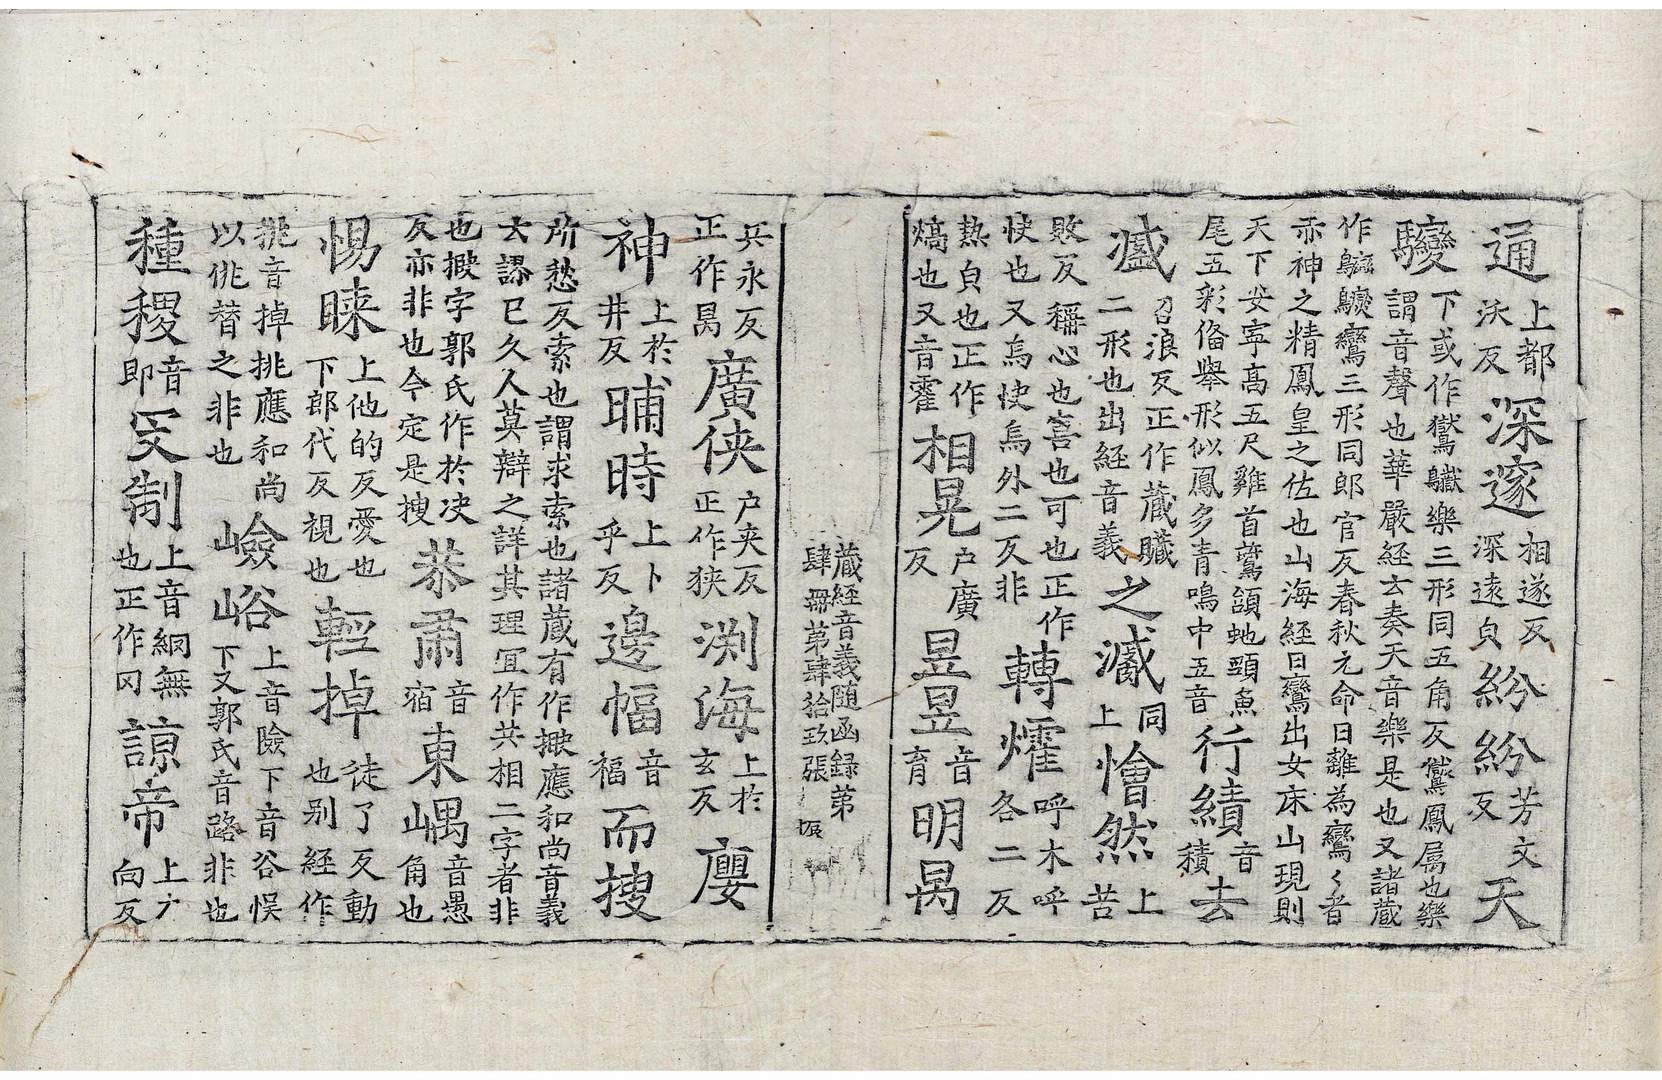 通上都沃反深邃相遂反深遠皃紛紛芳文反天
下或作鸑𪇆樂三形同五角反鸑鳳屬也樂
謂音聲也華嚴經云奏天音樂是也又諸藏
作𪈮鸞三形同郎官反春秋元命曰離為鸞鸞者
赤神之精鳳皇之佐也山海經曰鸞出女床山現則
天下安寧高五尺雞首鷰頷虵頸魚
尾五彩俻舉形似鳳多青鳴中五音行績音積去
臧二形也出經音義召浪反正作藏贓之臧上同懀然上苦
敗反稱心也喜也可也正作
快也又烏快烏外二反非轉㸌呼木呼各二反
熱皃也正作熇也又音霍相晃户廣反昱昱音育明昺
兵永反正作昺廣俠户夾反正作狹渕海上於玄反廮
神上於井反晡時上卜乎反邊幅音福而搜
所愁反索也謂求索也諸藏有作掓應和尚音義
云謬巳久人莫辯之詳其理冝作共相二字者非
也掓字郭氏作於决反亦非也今定是搜恭肅音宿東嵎音愚角也
惕睞上他的反愛也下郎代反視也輕掉徒了反動也别經作
挑音掉挑應和尚以佻替之非也嶮峪上音險下音谷悮下又郭氏音路非也
種稷音即罔制上音網無也正作罔諒帝上亠向反
藏經音義随函録第
肆冊第肆拾玖張 振